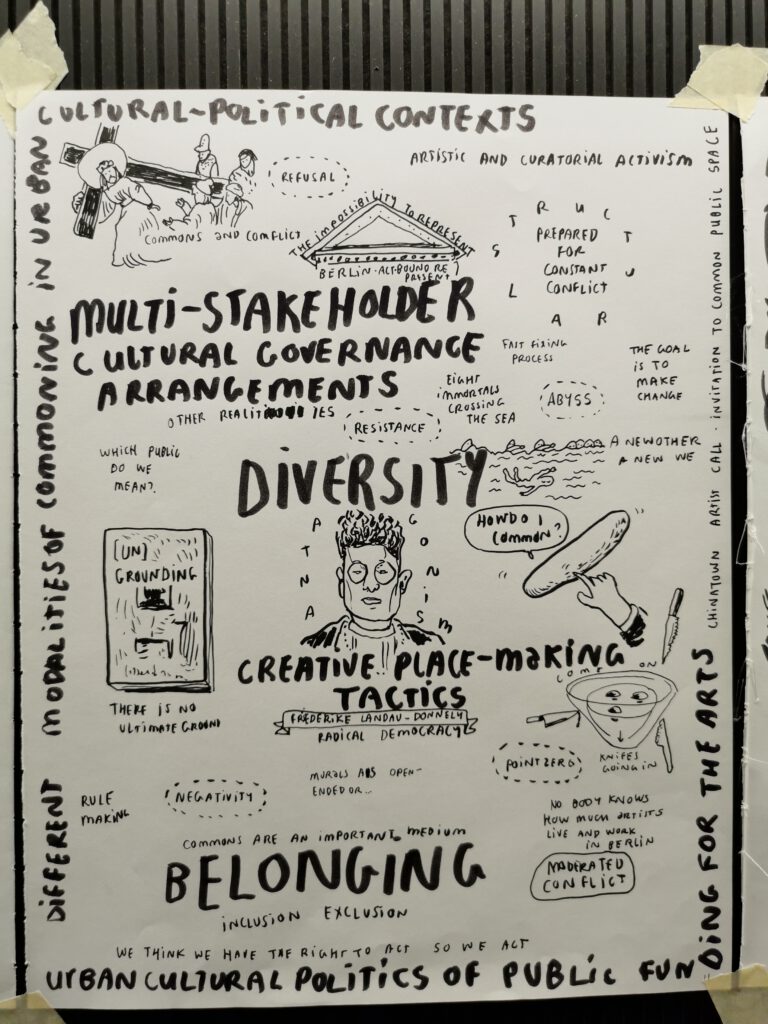 CULTURAL-POLITICAL CONTEXTS
DIFFERENT MODALITIES OF COMMONING IN URBAN
ARTISTIC AND CURATORIAL ACTIVISM
REFUSAL
COMMONS AND CONFLICT
THE IMPOSSIBILITY TO REPRESENT
BERLIN-ALTBOUND RE
PRESENT
STRUCTURAL
PREPARED
FOR
CONSTANT
CONFLICT
CHINATOWN ARTIST CALL - INVITATION TO COMMON PUBLIC SPACE
MULTI-STAKEHOLDER
CULTURAL GOVERNANCE
ARRANGEMENTS
FAST FIXING
PROCESS
THE GOAL
IS TO
MAKE
CHANGE
EIGHT
IMMORTALS
CROSSING
THE SEA
ABYSS
OTHER REALITIES
RESISTANCE
WHICH PUBLIC
DO WE
MEAN?
DIVERSITY
A NEW OTHER
A NEW WE
ANTAGONISM
HOW DO I
COMMON?
(UN)
GROUNDING
THERE IS NO
ULTIMATE GROUND
CREATIVE PLACE-MAKING
TACTICS
FRIEDERIKE LANDAU-DONNELLY
RADICAL DEMOCRACY
COME ON
POINT ZERO
KNIFES
GOING IN
MURALS AS OPEN-
ENDED OR...
RULE
MAKING
NEGATIVITY
NO BODY KNOWS
HOW MUCH ARTISTS
LIVE AND WORK
IN BERLIN
COMMONS ARE AN IMPORTANT MEDIUM
BELONGING
INCLUSION EXCLUSION
MODERATED
CONFLICT
WE THINK WE HAVE THE RIGHT TO ACT SO WE ACT
URBAN CULTURAL POLITICS OF PUBLIC FUN
DING FOR THE ARTS